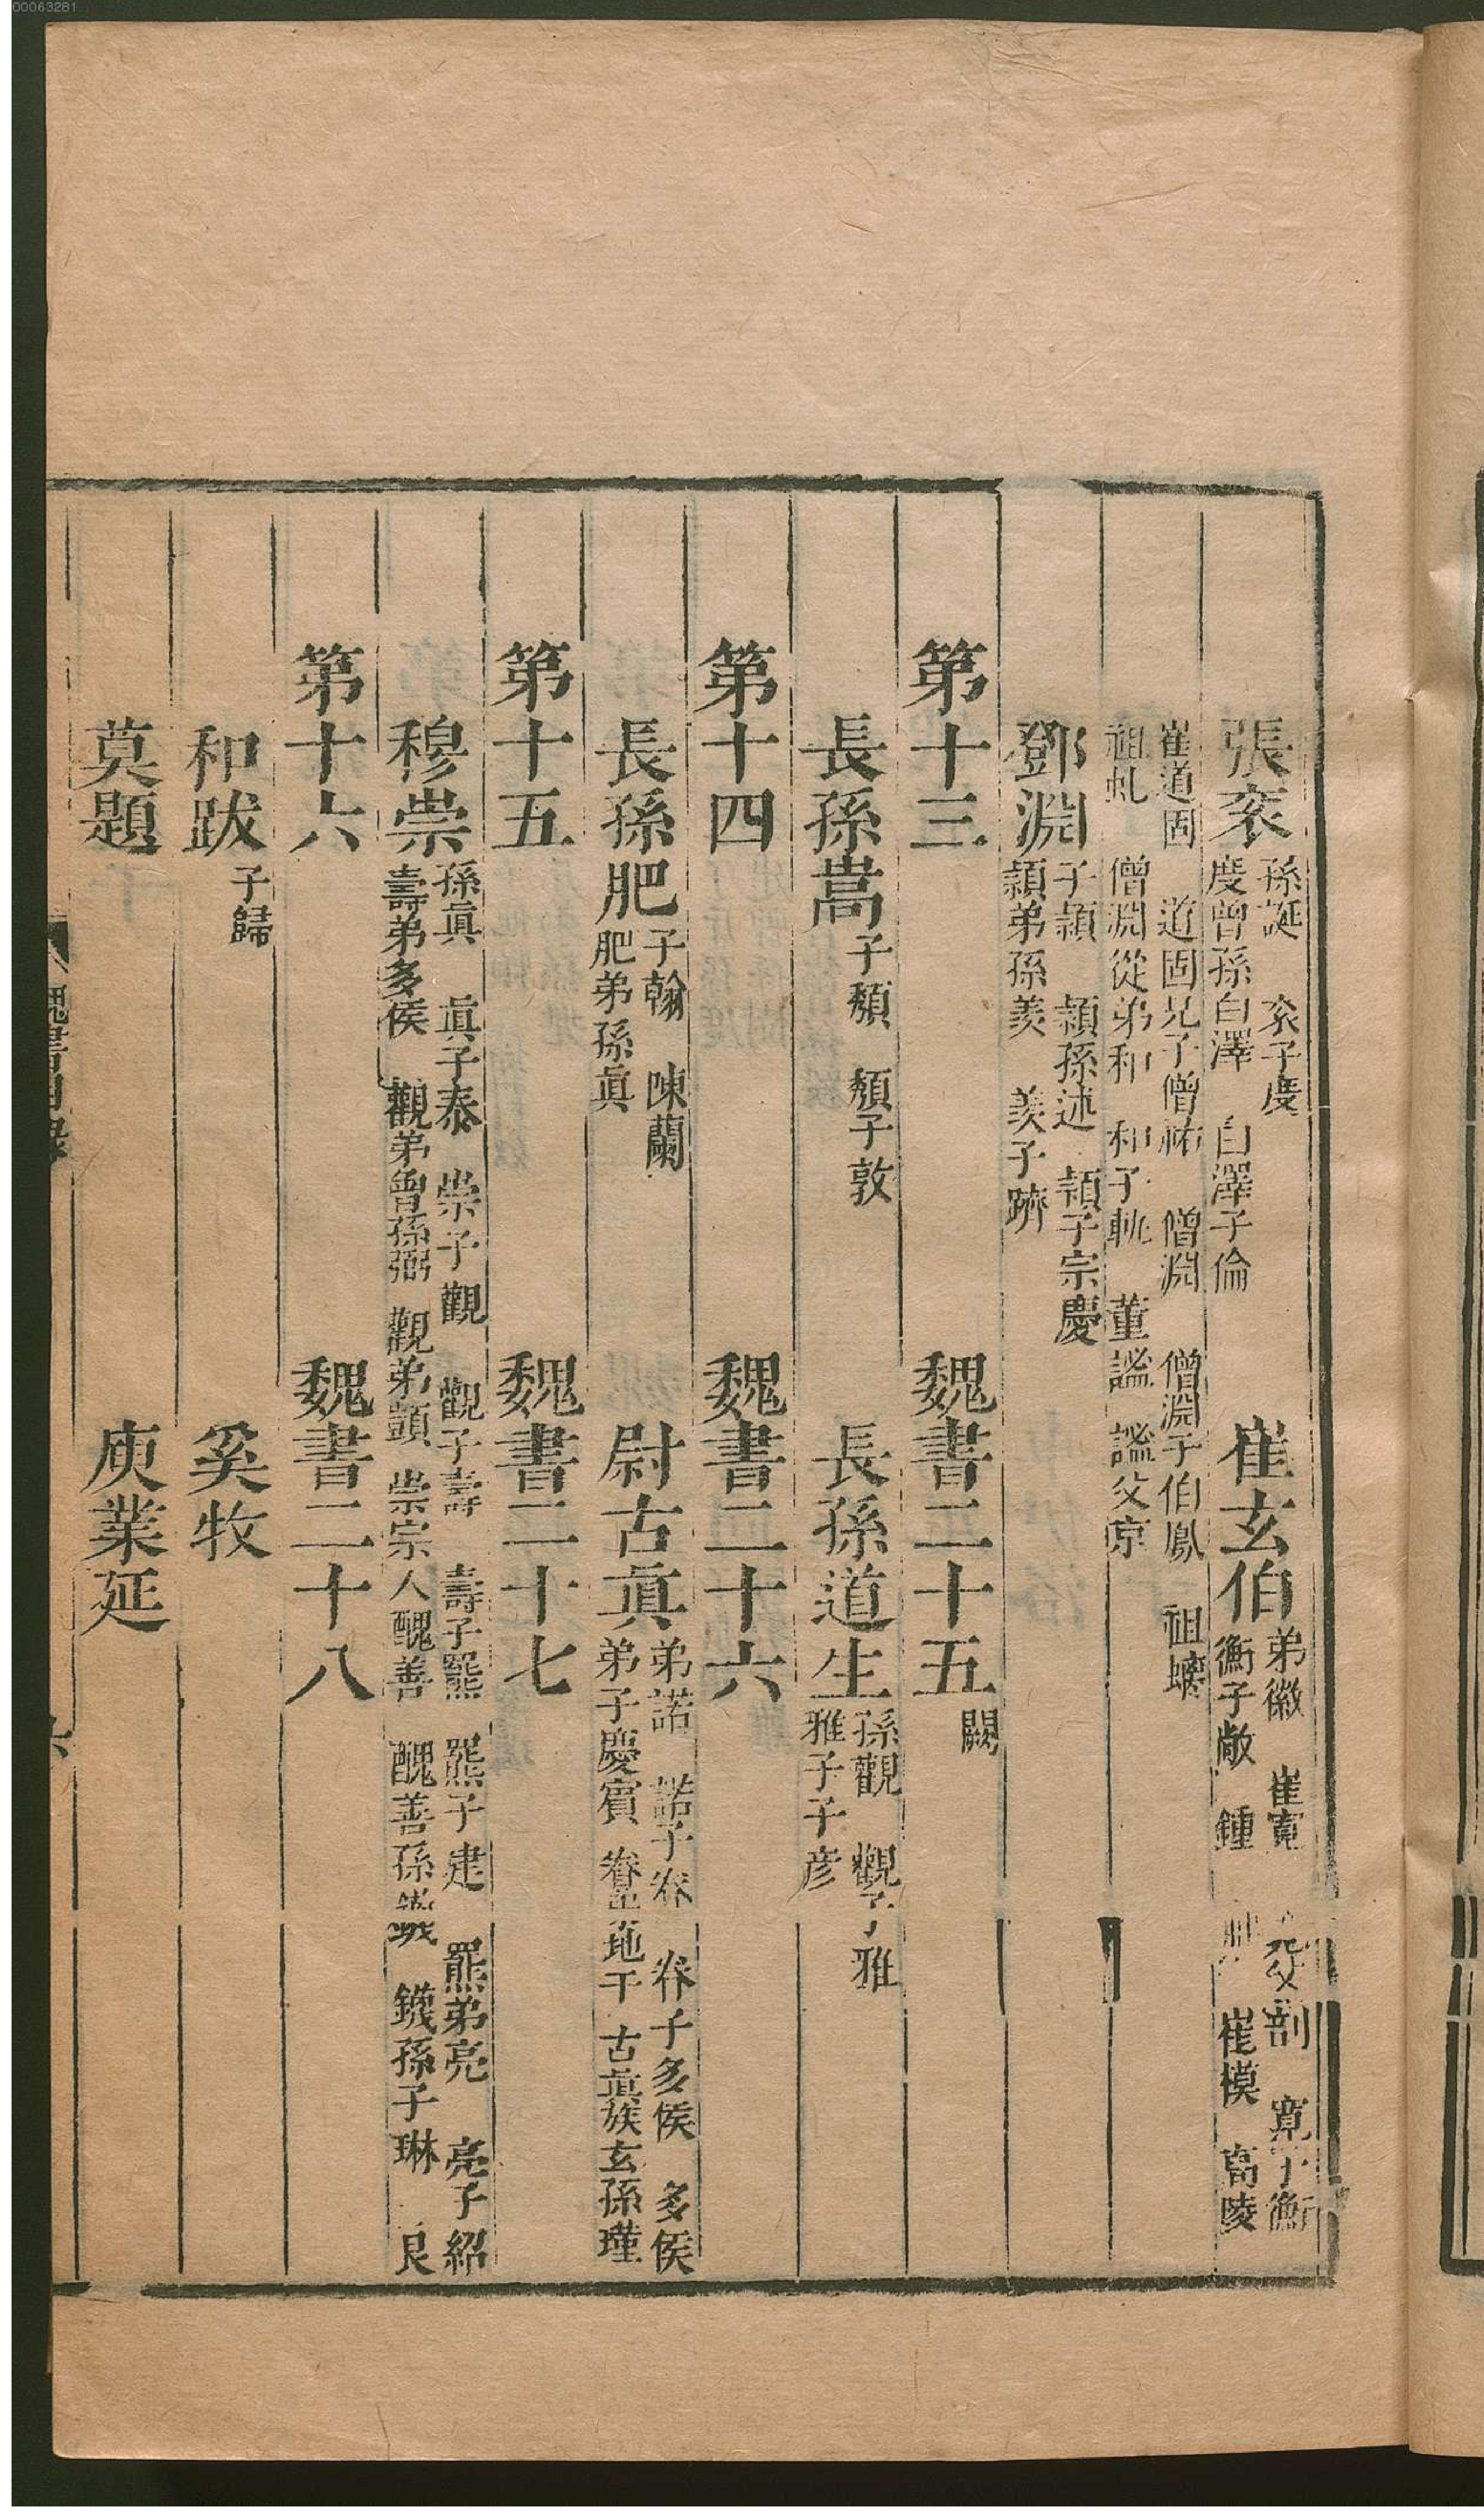 00063281
張袞 孫誕 袞子度 度曾孫白澤 白澤子倫 崔玄伯 弟徽 崔寬 父剖 寬子衡 衡子敞 鍾 崔模 高陵
崔道固 道固兄子僧祐 僧淵 僧淵子伯鳳 祖螭 祖虬 僧淵從弟和 和子軌 董謐 謐父京
鄧淵 子穎 穎孫述 穎子宗慶 穎弟孫羨 羨子躋
第十三 魏書二十五 闕
長孫嵩 子頹 頹子敦 長孫道生 孫觀 觀子雅 雅子子彥
第十四 魏書二十六
長孫肥 子翰 陳蘭 肥弟孫眞 尉古眞 弟諾 諾子眷 眷子多侯 多侯弟子慶賓 眷弟地干 古眞族玄孫瑾
第十五 魏書二十七
穆崇 孫眞 眞子泰 崇子觀 觀子壽 壽子羆 羆子建 羆弟亮 亮子紹 壽弟多侯 觀弟曾孫弼 觀弟顗 崇宗人醜善 醜善孫 鐵孫子琳 良
第十六 魏書二十八
和跋 子歸 奚牧
莫題 庾業延
魏書目錄
六